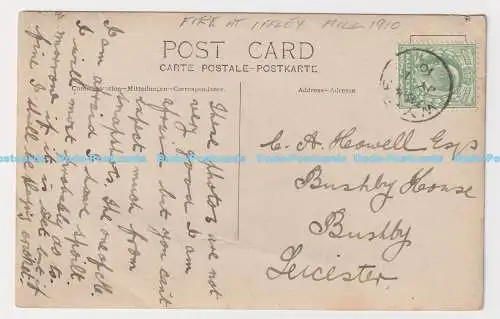 FIRE AT IFFLEY MILL 1910
POST CARD
CARTE POSTALE-POSTKARTE
Communication-Mittheilungen-Correspondenz.
Address-Adresse
These photos are not
very good I am
afraid but you can't
expect much from
snapshots. The one of Mr.
I am afraid I have spoilt.
I will most probably go to
morrow if it is hot but if
fine I shall be playing cricket.
C. A. Howell Esq
Bushby House
Bushby
Leicester